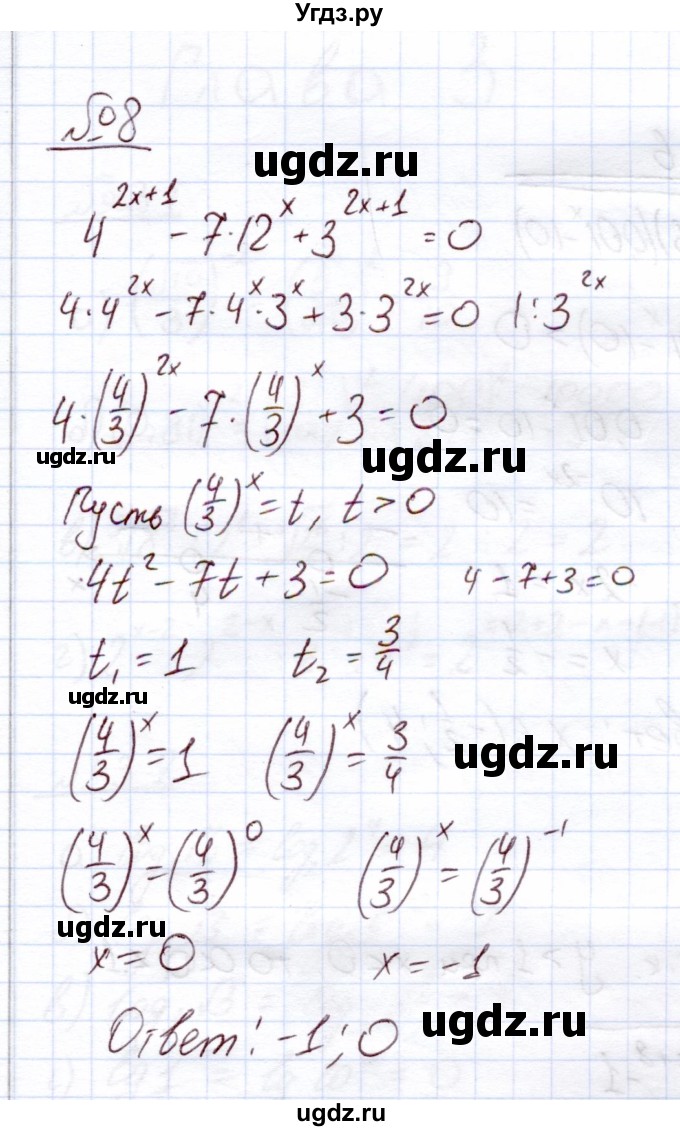 Угдз.ру
№8
ugdz.ru
4^(2x+1) - 7·12^x + 3^(2x+1) = 0
4·4^(2x) - 7·4^x·3^x + 3·3^(2x) = 0 |:3^(2x)
4·(4/3)^(2x) - 7·(4/3)^x + 3 = 0
ugdz.ru
ugdz.ru
Пусть (4/3)^x = t, t > 0
4t² - 7t + 3 = 0 4 - 7 + 3 = 0
t₁ = 1 t₂ = 3/4
ugdz.ru
(4/3)^x = 1 (4/3)^x = 3/4
ugdz.ru
(4/3)^x = (4/3)^0 (4/3)^x = (4/3)^(-1)
ugdz.ru
x = 0 x = -1
Ответ: -1; 0
ugdz.ru
ugdz.ru